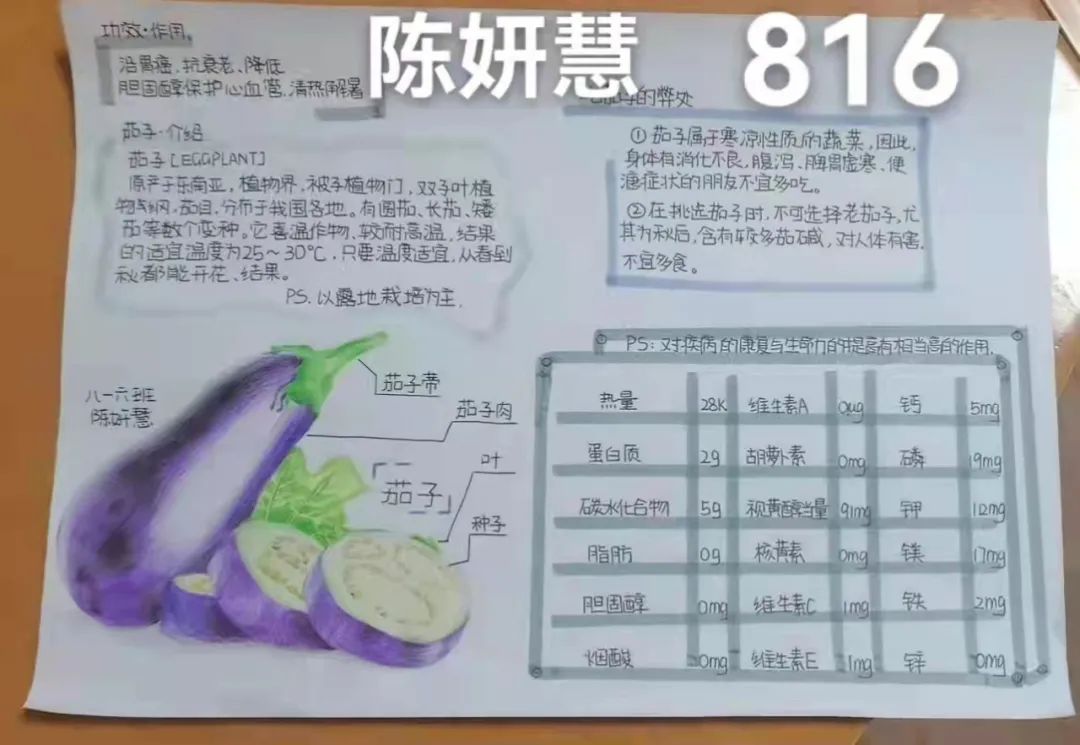 陈妍慧 816
功效·作用。
治胃癌、抗衰老、降低
胆固醇保护心血管、清热解暑
茄子·介绍
茄子[EGGPLANT]
原产于东南亚，植物界，被子植物门，双子叶植
物纲，茄目，分布于我国各地。有圆茄、长茄、矮
茄等数个变种。它喜温作物、较耐高温，结果
的适宜温度为25～30℃，只要温度适宜，从春到
秋都能开花、结果。
PS.以露地栽培为主.
茄子的弊处
①茄子属于寒凉性质的蔬菜，因此，
身体有消化不良，腹泻、脾胃虚寒、便
溏症状的朋友不宜多吃。
②在挑选茄子时，不可选择老茄子，尤
其为秋后，含有较多茄碱，对人体有害，
不宜多食。
八一六班
陈妍慧
茄子带
茄子肉
叶
「茄子」
种子
PS：对疾病的康复与生命力的提高有相当高的作用.
热量 28K 维生素A 0ug 钙 5mg
蛋白质 2g 胡萝卜素 0mg 磷 19mg
碳水化合物 5g 视黄醇当量 91mg 钾 12mg
脂肪 0g 核黄素 0mg 镁 17mg
胆固醇 0mg 维生素C 1mg 铁 2mg
烟酸 0mg 维生素E 1mg 锌 0mg